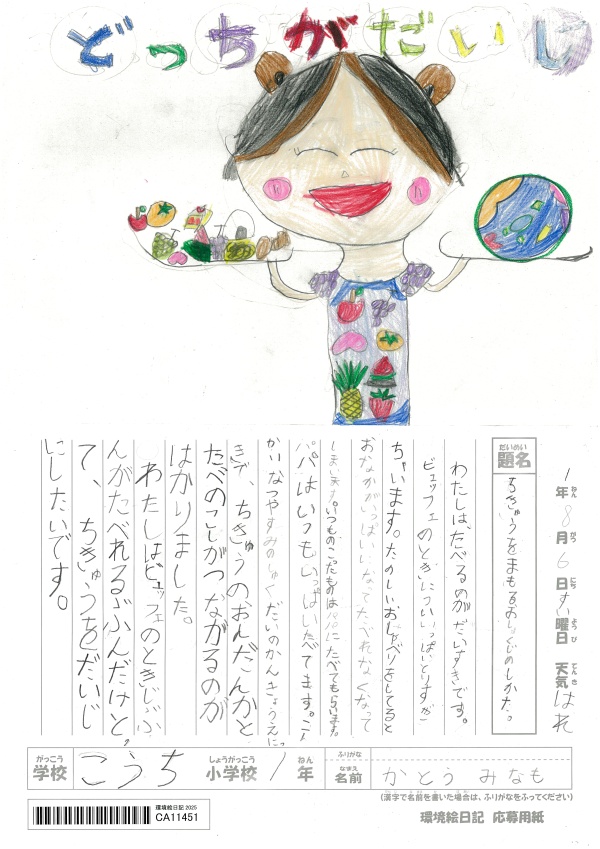 どっちがだいじ
1年8月6日すい曜日 天気はれ
ねん がつ にち ようび てんき
だいめい
題名
ちきゅうをまもるおしょくじのしかた。
わたしは、たべるのがだいすきです。
ビュッフェのときに、ついいっぱいとりすぎ
ちゃいます。たのしいおしゃべりをしてると
おなかがいっぱいになってたべれなくなって
しまいます。いつものこしたものはパパにたべてもらいます。
パパはいつもいっぱいたべてます。こん
かいなつやすみのしゅくだいのかんきょうえにっ
きで、ちきゅうのおんだんかと
たべのこしがつながるのが
はかりました。
わたしはビュッフェのときじぶ
んがたべれるぶんだけとっ
て、ちきゅうをだいじ
にしたいです。
がっこう
学校
こうち
しょうがっこう
小学校
1
ねん
年
ふりがな
なまえ
名前
かとう みなも
(漢字で名前を書いた場合は、ふりがなをふってください)
環境絵日記 2025
CA11451
環境絵日記 応募用紙